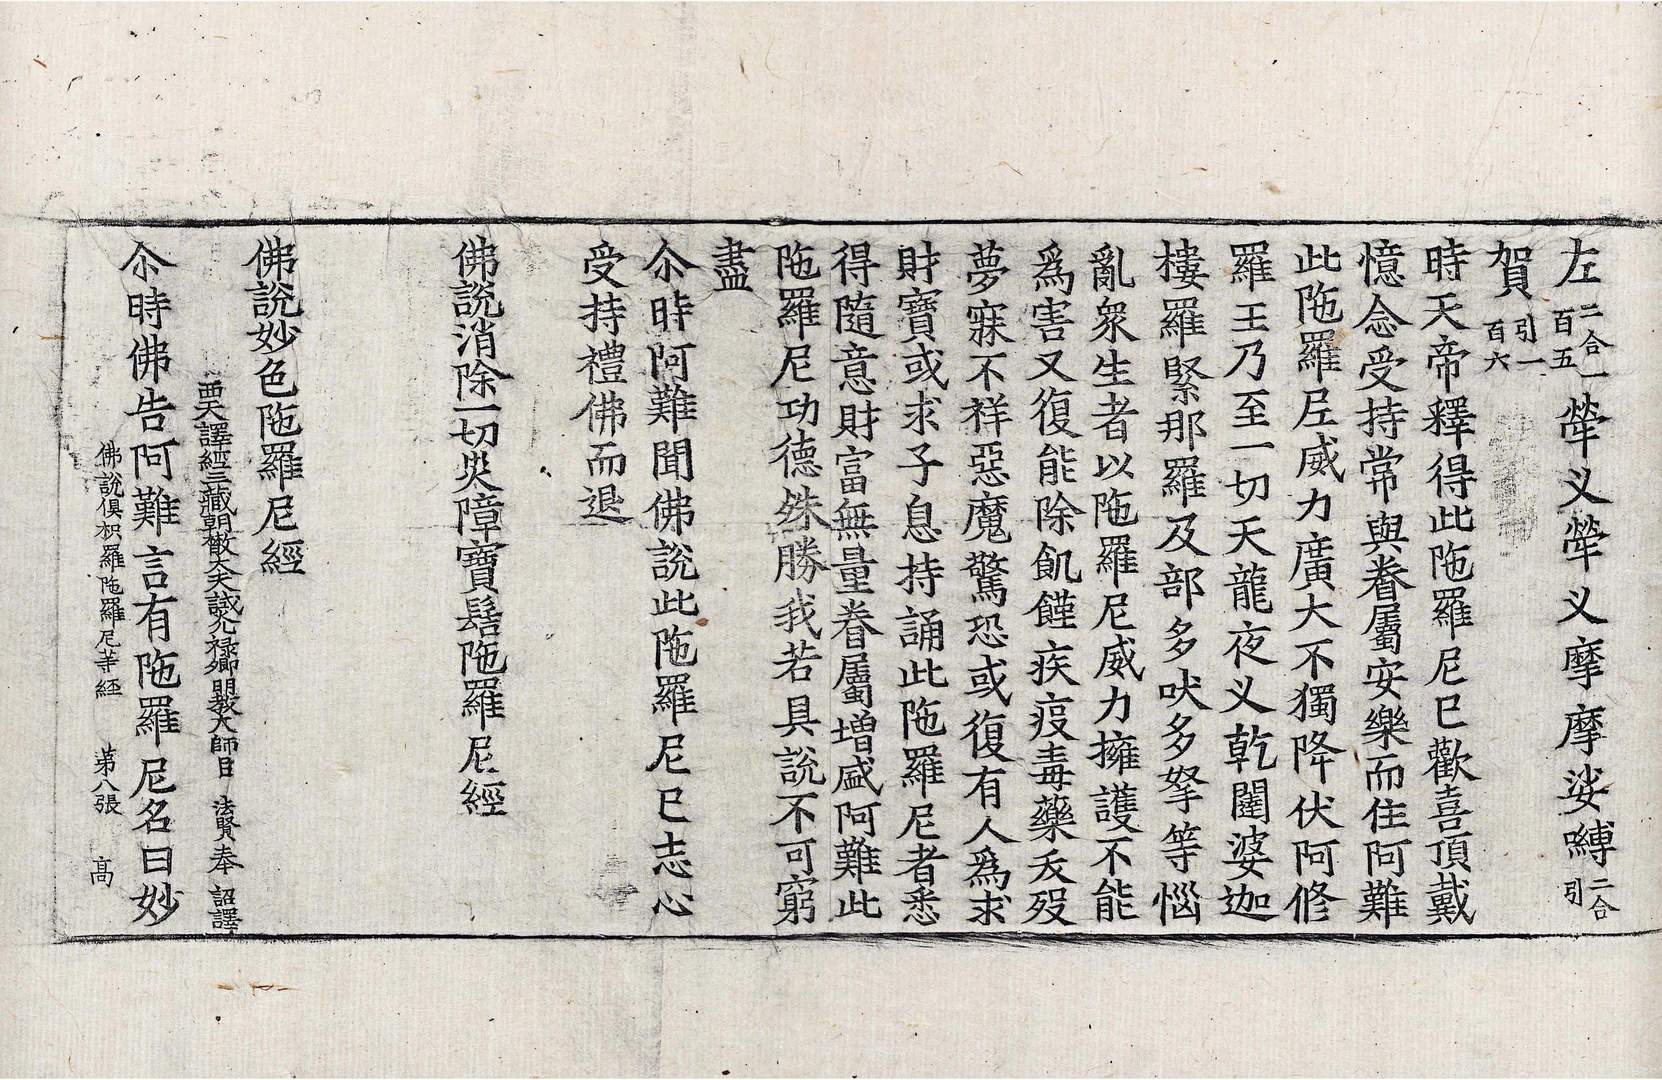 左二合一百五犖义犖义摩摩娑嚩二合引
賀引一百六
時天帝釋得此陁羅尼已歡喜頂戴
憶念受持常與眷屬安樂而住阿難
此陁羅尼威力廣大不獨降伏阿修
羅王乃至一切天龍夜义乾闥婆迦
樓羅緊那羅及部多吠多拏等惱
亂衆生者以陁羅尼威力擁護不能
爲害又復能除飢饉疾疫毒藥夭殁
夢寐不祥惡魔驚恐或復有人爲求
財寶或求子息持誦此陁羅尼者悉
得隨意財富無量眷屬增盛阿難此
陁羅尼功德殊勝我若具說不可窮
盡
尒時阿難聞佛說此陁羅尼已志心
受持禮佛而退
佛說消除一切災障寶髻陁羅尼經
佛說妙色陁羅尼經
西天譯經三藏朝散大夫試光禄卿明教大師臣法賢奉 詔譯
尒時佛告阿難言有陁羅尼名曰妙
佛說俱枳羅陁羅尼等經 第八張 高